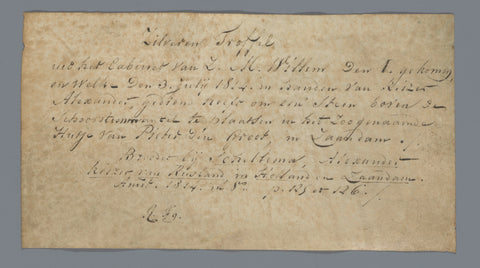 Zilveren Troffel
uit het Cabinet van Z. M. Willem den I. gekomen
en welke den 3. July 1814. in handen van Keizer
Alexander, gediend heeft om een Steen boven de
Schoorsteenmantel te plaatsen in het Zoogenaamde
Hutje van Pieter den Groot, in Zaandam.
bij Scheltema, Alexander
Keizer van Rusland, in Holland en Zaandam.
Amst. 1814. in 8vo. p. 125 et 126.